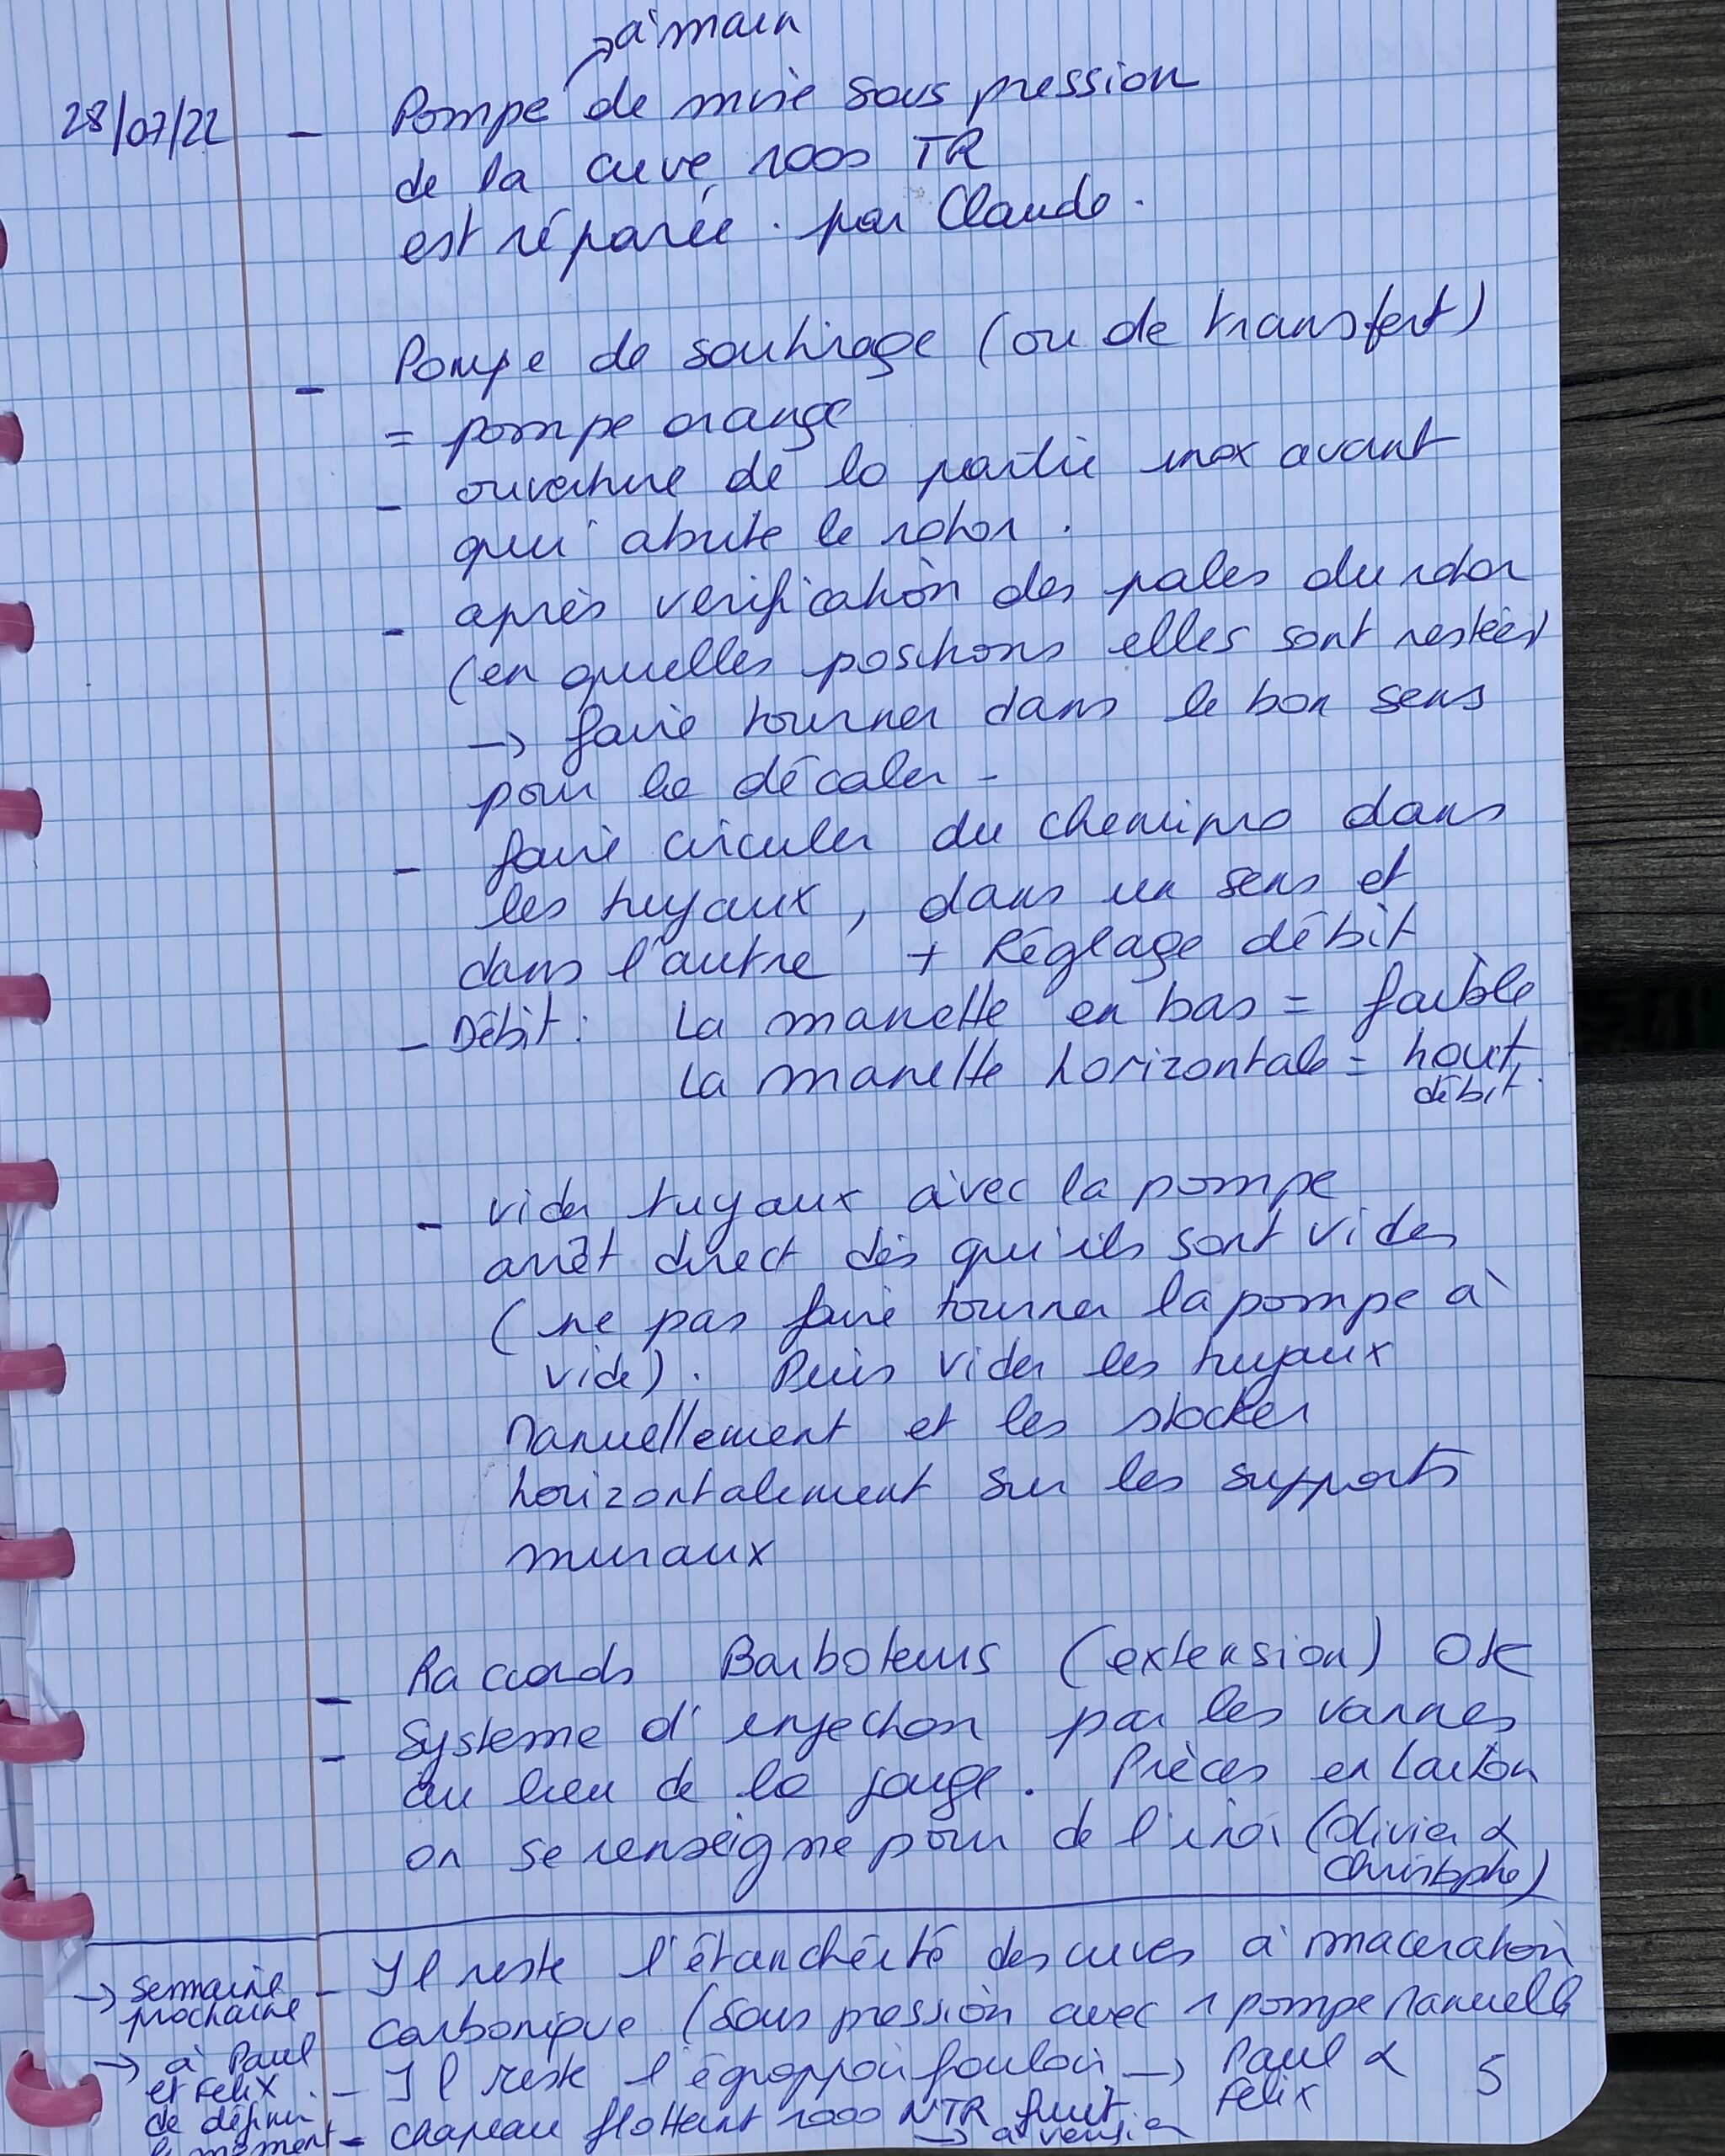 → à main
28/07/22 - Pompe de mise sous pression
de la cuve, 1000 TR
est réparée. par Claude.
- Pompe de soutirage (ou de transfert)
= pompe orange
- ouverture de la partie inox avant
qui abute le rotor.
- après verification des pales du rotor
(en quelles positions elles sont restées)
→ faire tourner dans le bon sens
pour le décaler -
- faire circuler du chemipro dans
les tuyaux, dans un sens et
dans l'autre + Réglage débit
- Débit: La manette en bas = faible
La manette horizontale = haut
débit.
- vider tuyaux avec la pompe
arrêt direct dès qu'ils sont vides
(ne pas faire tourner la pompe à
vide). Puis vider les tuyaux
manuellement et les stocker
horizontalement sur les supports
muraux
- Raccords Barboteurs (extension) OK
- Système d'injection par les vannes
au lieu de la jauge. Pièces en Laiton
on se renseigne pour de l'inox (Olivier &
Christophe)
→ semaine
prochaine
- Il reste l'étanchéité des cuves à maceration
carbonique (sous pression avec 1 pompe manuelle
→ à Paul
et Felix.
de définir
le moment
- Il reste l'égrappoir fouloir → Paul &
Felix
- chapeau flottant 1000 NTR fuit
→
5